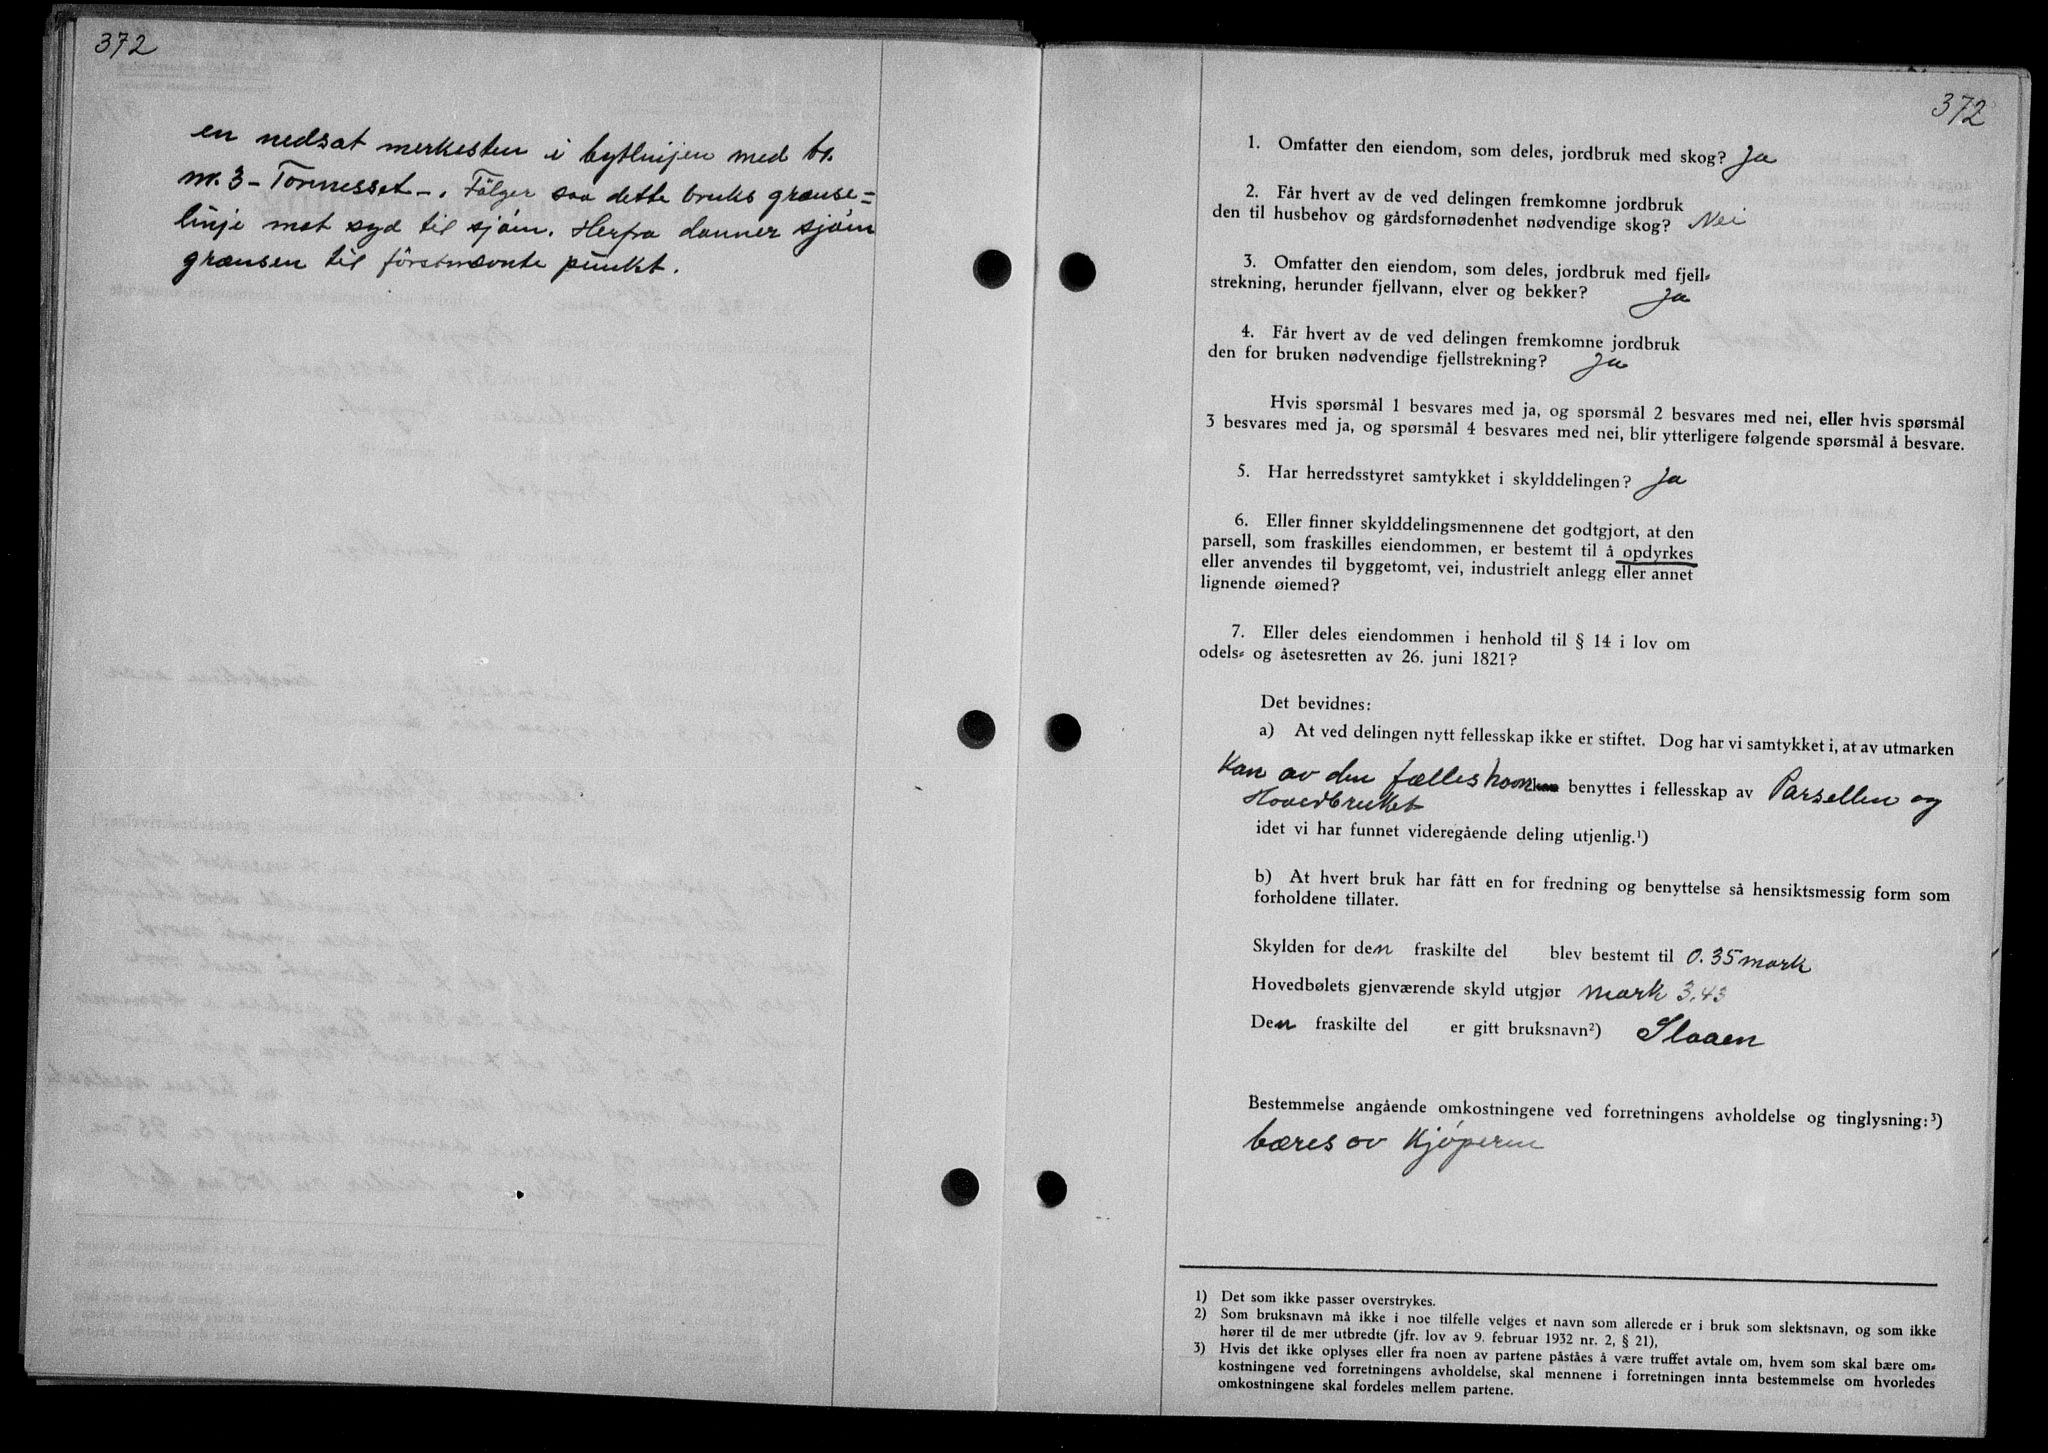 372
en nedsat merkesten i bytlinjen med br.
nr. 3 - Tornesset -. Følger saa dette bruks grænse-
linje mot syd til sjøin. Herfra danner sjøin
grænsen til förstnævnte punkt.
372
1. Omfatter den eiendom, som deles, jordbruk med skog? Ja
2. Får hvert av de ved delingen fremkomne jordbruk
den til husbehov og gårdsfornødenhet nødvendige skog? Nei
3. Omfatter den eiendom, som deles, jordbruk med fjell-
strekning, herunder fjellvann, elver og bekker? Ja
4. Får hvert av de ved delingen fremkomne jordbruk
den for bruken nødvendige fjellstrekning? Ja
Hvis spørsmål 1 besvares med ja, og spørsmål 2 besvares med nei, eller hvis spørsmål
3 besvares med ja, og spørsmål 4 besvares med nei, blir ytterligere følgende spørsmål å besvare.
5. Har herredsstyret samtykket i skylddelingen? Ja
6. Eller finner skylddelingsmennene det godtgjort, at den
parsell, som fraskilles eiendommen, er bestemt til å opdyrkes
eller anvendes til byggetomt, vei, industrielt anlegg eller annet
lignende øiemed?
7. Eller deles eiendommen i henhold til § 14 i lov om
odels- og åsetesretten av 26. juni 1821?
Det bevidnes:
a) At ved delingen nytt fellesskap ikke er stiftet. Dog har vi samtykket i, at av utmarken
kan av den fælles havn benyttes i fellesskap av Parsellen og
Hovedbruket
idet vi har funnet videregående deling utjenlig.¹)
b) At hvert bruk har fått en for fredning og benyttelse så hensiktsmessig form som
forholdene tillater.
Skylden for den fraskilte del blev bestemt til 0.35 mark
Hovedbølets gjenværende skyld utgjør mark 3.43
Den fraskilte del er gitt bruksnavn²) Slaaen
Bestemmelse angående omkostningene ved forretningens avholdelse og tinglysning:³)
bæres av Kjøperen
1) Det som ikke passer overstrykes.
2) Som bruksnavn må ikke i noe tilfelle velges et navn som allerede er i bruk som slektsnavn, og som ikke
hører til de mer utbredte (jfr. lov av 9. februar 1932 nr. 2, § 21),
3) Hvis det ikke oplyses eller fra noen av partene påståes å være truffet avtale om, hvem som skal bære om-
kostningene ved forretningens avholdelse, skal mennene i forretningen innta bestemmelse om hvorledes
omkostningene skal fordeles mellem partene.